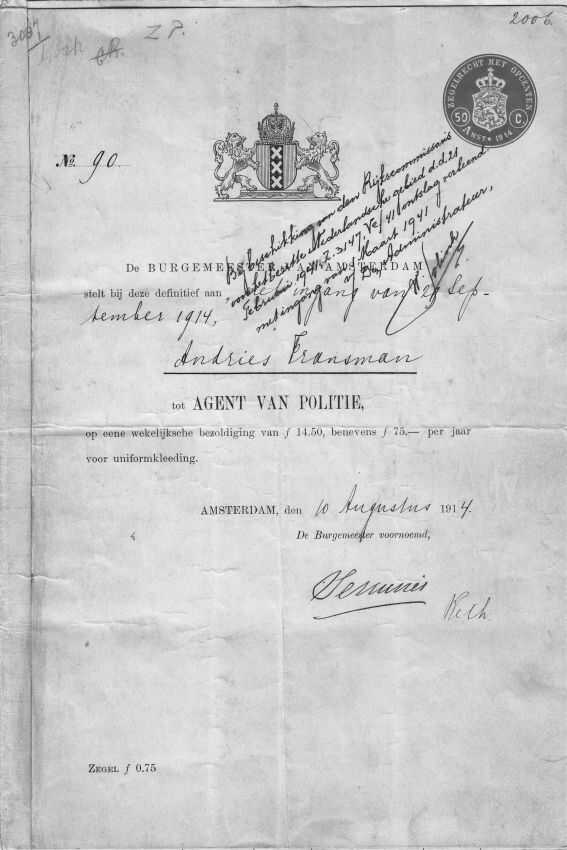 2006.
Z P.
ZEGELRECHT MET OPCENTEN
50 C.
AMST. 1914
No. 90
Bij beschikking van den Rijkscommissaris
voor het bezette Nederlandsche gebied d.d. 21
Februari 1941 Z. 3147, Ve/41 ontslag verleend
met ingang van 1 Maart 1941
De Administrateur,
De BURGEMEESTER van AMSTERDAM
stelt bij deze definitief aan met ingang van Sep-
tember 1914,
Andries Fransman
tot AGENT VAN POLITIE,
op eene wekelijksche bezoldiging van ƒ 14.50, benevens ƒ 75,— per jaar
voor uniformkleeding.
AMSTERDAM, den 10 Augustus 1914.
De Burgemeester voornoemd,
ZEGEL ƒ 0.75